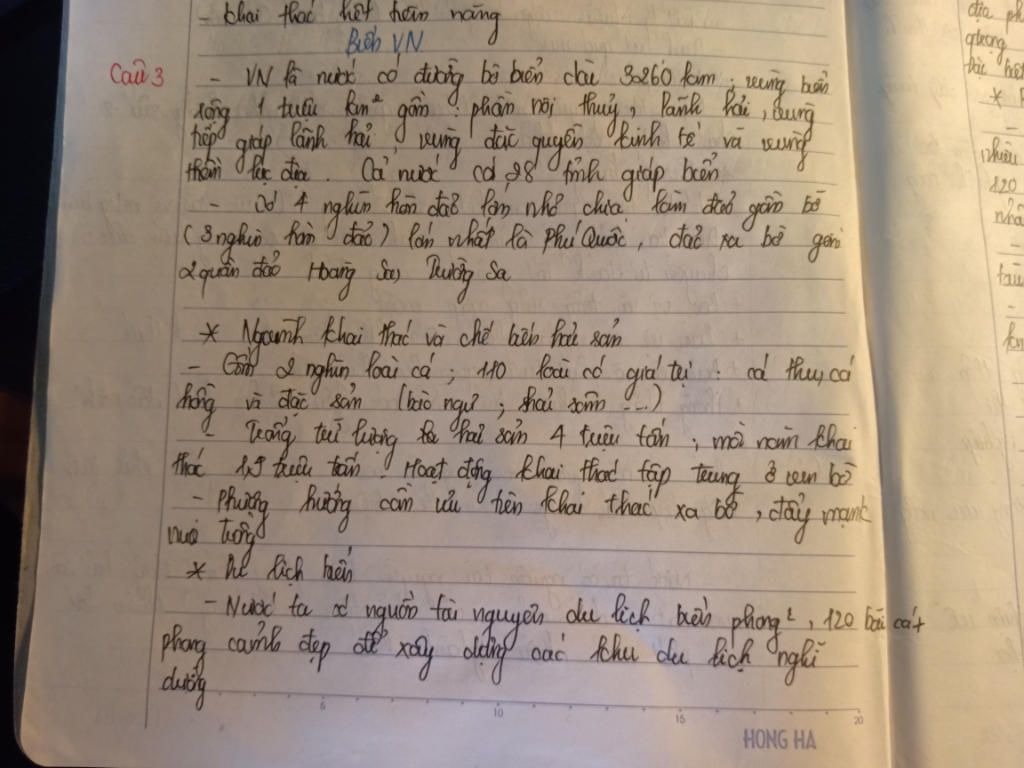 - khai thác hết tiềm năng
Biển VN
Câu 3
- VN là nước có đường bờ biển dài 3260 km ; vùng biển
rộng 1 triệu km² gồm : phần nội thuỷ, lãnh hải, vùng
tiếp giáp lãnh hải, vùng đặc quyền kinh tế và vùng
thềm lục địa. Cả nước có 28 tỉnh giáp biển
- Có 4 nghìn hòn đảo lớn nhỏ chia làm đảo gần bờ
(3 nghìn hòn đảo) lớn nhất là Phú Quốc, đảo xa bờ gồm
2 quần đảo Hoàng Sa, Trường Sa
* Ngành khai thác và chế biến hải sản
- Gồm 2 nghìn loài cá ; 110 loài có giá trị : cá thu, cá
hồng và đặc sản (bào ngư ; hải sâm ...)
- Trong trữ lượng hải sản 4 triệu tấn ; mỗi năm khai
thác 1,9 triệu tấn. Hoạt động khai thác tập trung ở ven bờ
- Phương hướng cần ưu tiên khai thác xa bờ, đẩy mạnh
nuôi trồng
* Du lịch biển
- Nước ta có nguồn tài nguyên du lịch biển phong², 120 bãi cát
phong cảnh đẹp để xây dựng các khu du lịch nghỉ
dưỡng
5 10 15 20
HONG HA
địa